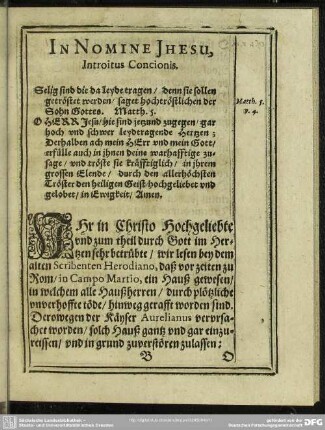 IN NOMINE JHESU,
Introitus Concionis.
Selig sind die da leyde tragen / denn sie sollen
getröstet werden / saget hochtröstlichen der
Sohn Gottes. Matth. 5.
Matth. 5.
v. 4.
O HERR Jesu / hie sind jetzund zugegen / gar
hoch vnd schwer leydtragende Hertzen;
Derhalben ach mein HErr vnd mein Gott /
erfülle auch in jhnen deine warhafftige zu-
sage / vnd tröste sie kräfftiglich / in jhrem
grossen Elende / durch den allerhöchsten
Tröster den heiligen Geist / hochgeliebet vnd
gelobet / in Ewigkeit / Amen.
IHr in Christo Hochgeliebte
vnd zum theil durch Gott im Her-
tzen sehr betrübte / wir lesen bey dem
alten Scribenten Herodiano, daß vor zeiten zu
Rom / in Campo Martio, ein Hauß gewesen /
in welchem alle Haußherren / durch plötzliche
vnverhoffte töde / hinweg gerafft worden sind.
Derowegen der Käyser Aurelianus verursa-
chet worden / solch Hauß gantz vnd gar einzu-
reissen / vnd in grund zuverstören zulassen:
B
O
Sächsische Landesbibliothek -
Staats- und Universitätsbibliothek Dresden
gefördert von der
Deutschen Forschungsgemeinschaft
DFG